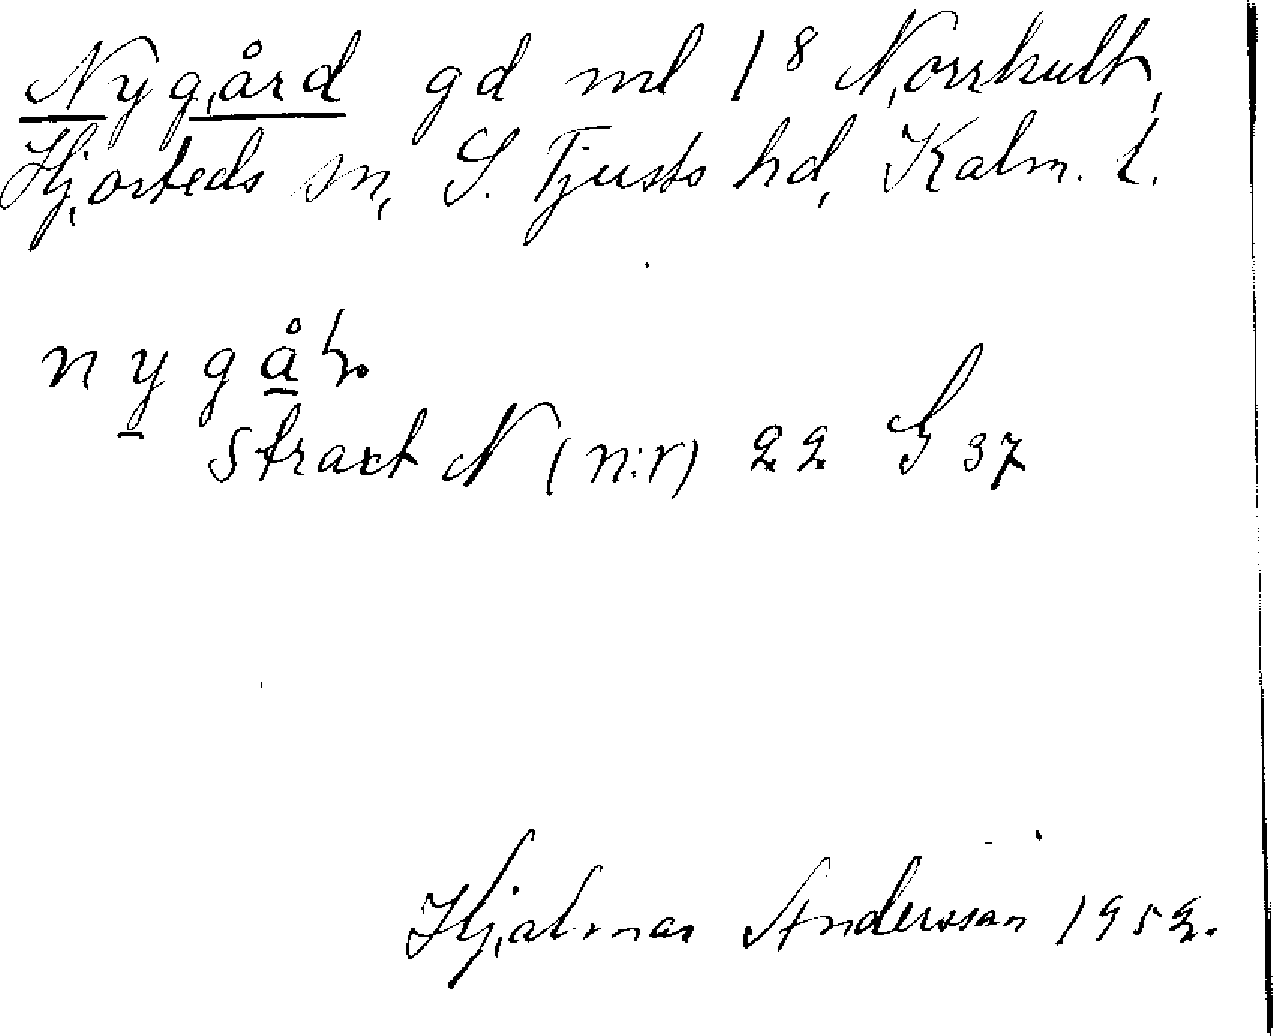 Nygård gd ml 1⁸ Norrhult,
Hjorteds sn, S. Tjusts hd, Kalm. l.
nygå
straxt N (n:r) 22 G 37
Hjalmar Andersson 1952.